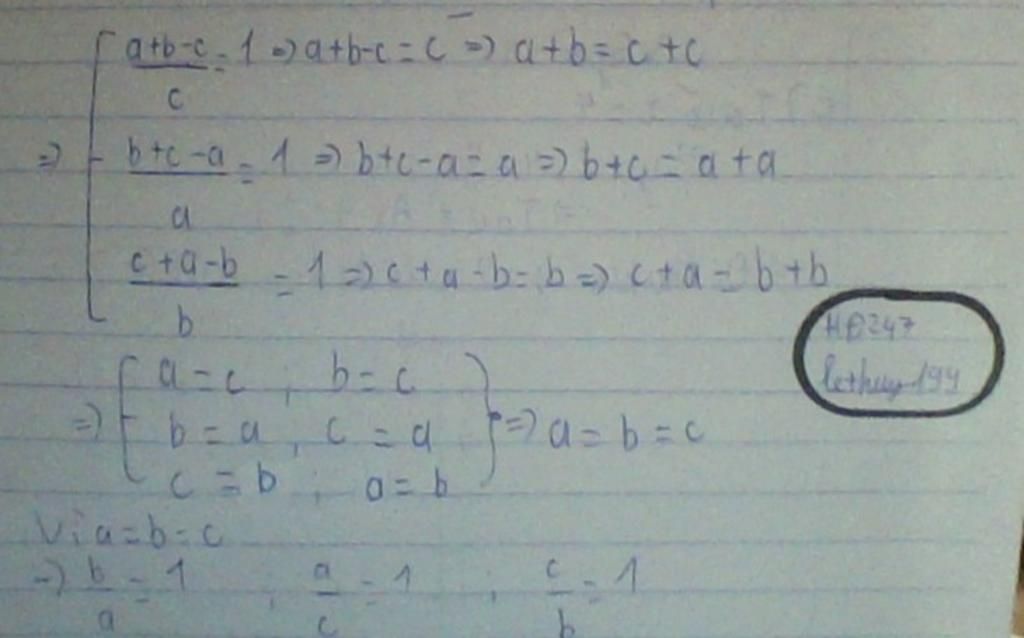 a+b-c/c = 1 => a+b-c = c => a+b = c+c
=> b+c-a/a = 1 => b+c-a = a => b+c = a+a
c+a-b/b = 1 => c+a-b = b => c+a = b+b
HB247
lethuy 199
a = c ; b = c
=> b = a , c = a => a = b = c
c = b ; a = b
Vì a = b = c
=> b/a = 1 ; a/c = 1 ; c/b = 1